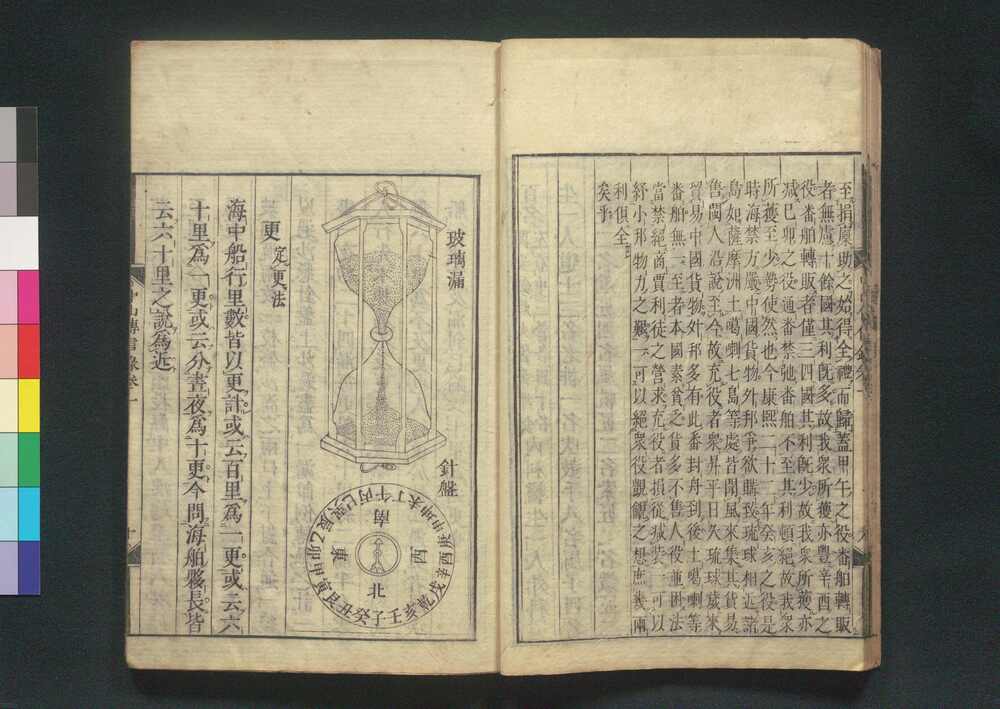 至捐廩助之始得全禮而歸蓋甲午之役番舶轉販
者無慮十餘國其利旣多故我衆所獲亦豐辛酉之
役番舶轉販者僅三四國其利旣少故我衆所獲亦
减己卯之役通番禁弛番舶不至其利頓絕故我衆
所獲至少勢使然也今康熙二十二年癸亥之役是
時海禁方嚴中國貨物外邦爭欲購致琉球相近諸
島如薩摩洲土噶喇七島等處皆聞風來集其貨易
售閩人沿說至今故充役者衆昇平日久琉球歲來
貿易中國貨物外邦多有此番封舟到後土噶喇等
番舶無一至者本國素貧乏貨多不售人役並困法
當禁絕商賈利徒之營求充役者損從减裝一可以
紓小邦物力之艱一可以絕衆役覬覦之想庶幾兩
利俱全
矣乎
玻璃漏
針盤
午丙巳巽辰乙卯甲寅艮丑癸子壬亥乾戌辛酉庚申坤未丁
南
西
東
北
更 定更法
海中船行里數皆以更計或云百里爲一更或云六
十里爲一更或云分晝夜爲十更今問海舶夥長皆
云六十里之說爲近
中山傳信錄卷一
十